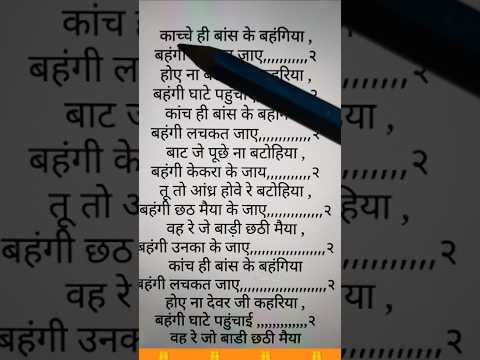 काच्चे ही बांस के बहंगिया ,
बहंगी जाए,,,,,,,,,,,,२
होए ना
बहंगी घाटे २
कांच ही बांस के
बहंगी लचकत जाए,,,,,,,,,,,,,,२
बाट जे पूछे ना बटोहिया ,
बहंगी केकरा के जाय,,,,,,,,,,,२
तू तो आंध्र होवे रे बटोहिया ,
बहंगी छठ मैया के जाए,,,,,,,,,,,,,,,२
वह रे जे बाड़ी छठी मैया ,
बहंगी उनका के जाए,,,,,,,,,,,,,,,,,,,,२
कांच ही बांस के बहंगिया
बहंगी लचकत जाए,,,,,,,,,,,,,,,,,,,,,,२
होए ना देवर जी कहरिया ,
बहंगी घाटे पहुंचाई ,,,,,,,,,,,,,२
वह रे जो बाडी छठी मैया